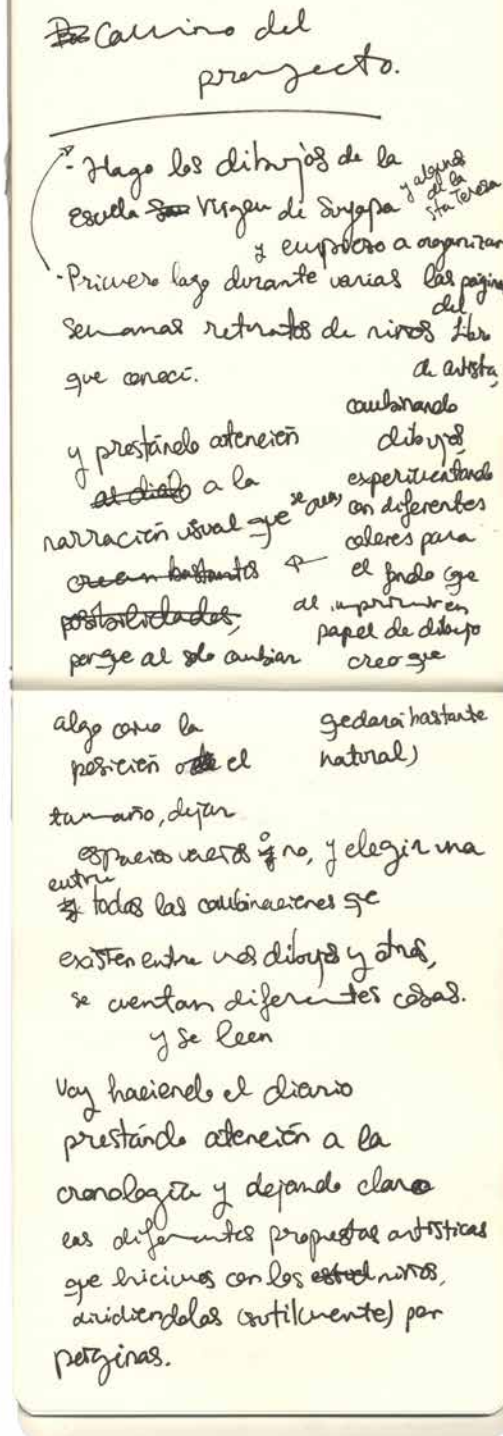 Camino del
proyecto.
- Hago los dibujos de la
escuela Virgen de Suyapa y algunos de la Sta Teresa
- Primero hago durante varias
semanas retratos de niños
que conocí.
y empiezo a organizar
las páginas
del
libro
de artista,
combinando
dibujos,
experimentando
con diferentes
colores para
el fondo (que
al imprimir en
papel de dibujo
creo que
quedará bastante
natural)
y prestando atención
al diálo a la
narración visual que se crea,
crean bastantes
posibilidades,
porque al solo cambiar
algo como la
posición o el
tamaño, dejar
espacios vacíos o no, y elegir una
entre todas las combinaciones que
existen entre unos dibujos y otros,
se cuentan diferentes cosas.
y se leen
Voy haciendo el diario
prestando atención a la
cronología y dejando claro
las diferentes propuestas artísticas
que hicimos con los niños,
dividiendolas (sutilmente) por
páginas.